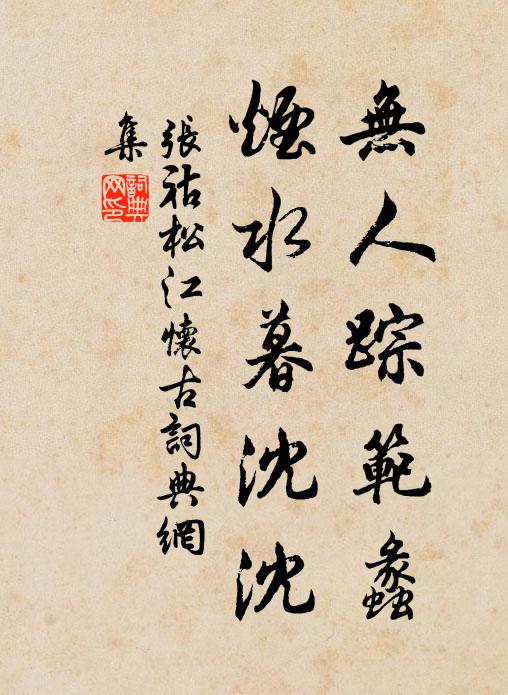 無人踪範蠡
煙水暮沈沈
張祜松江懷古詞典網
集
詞典
网印